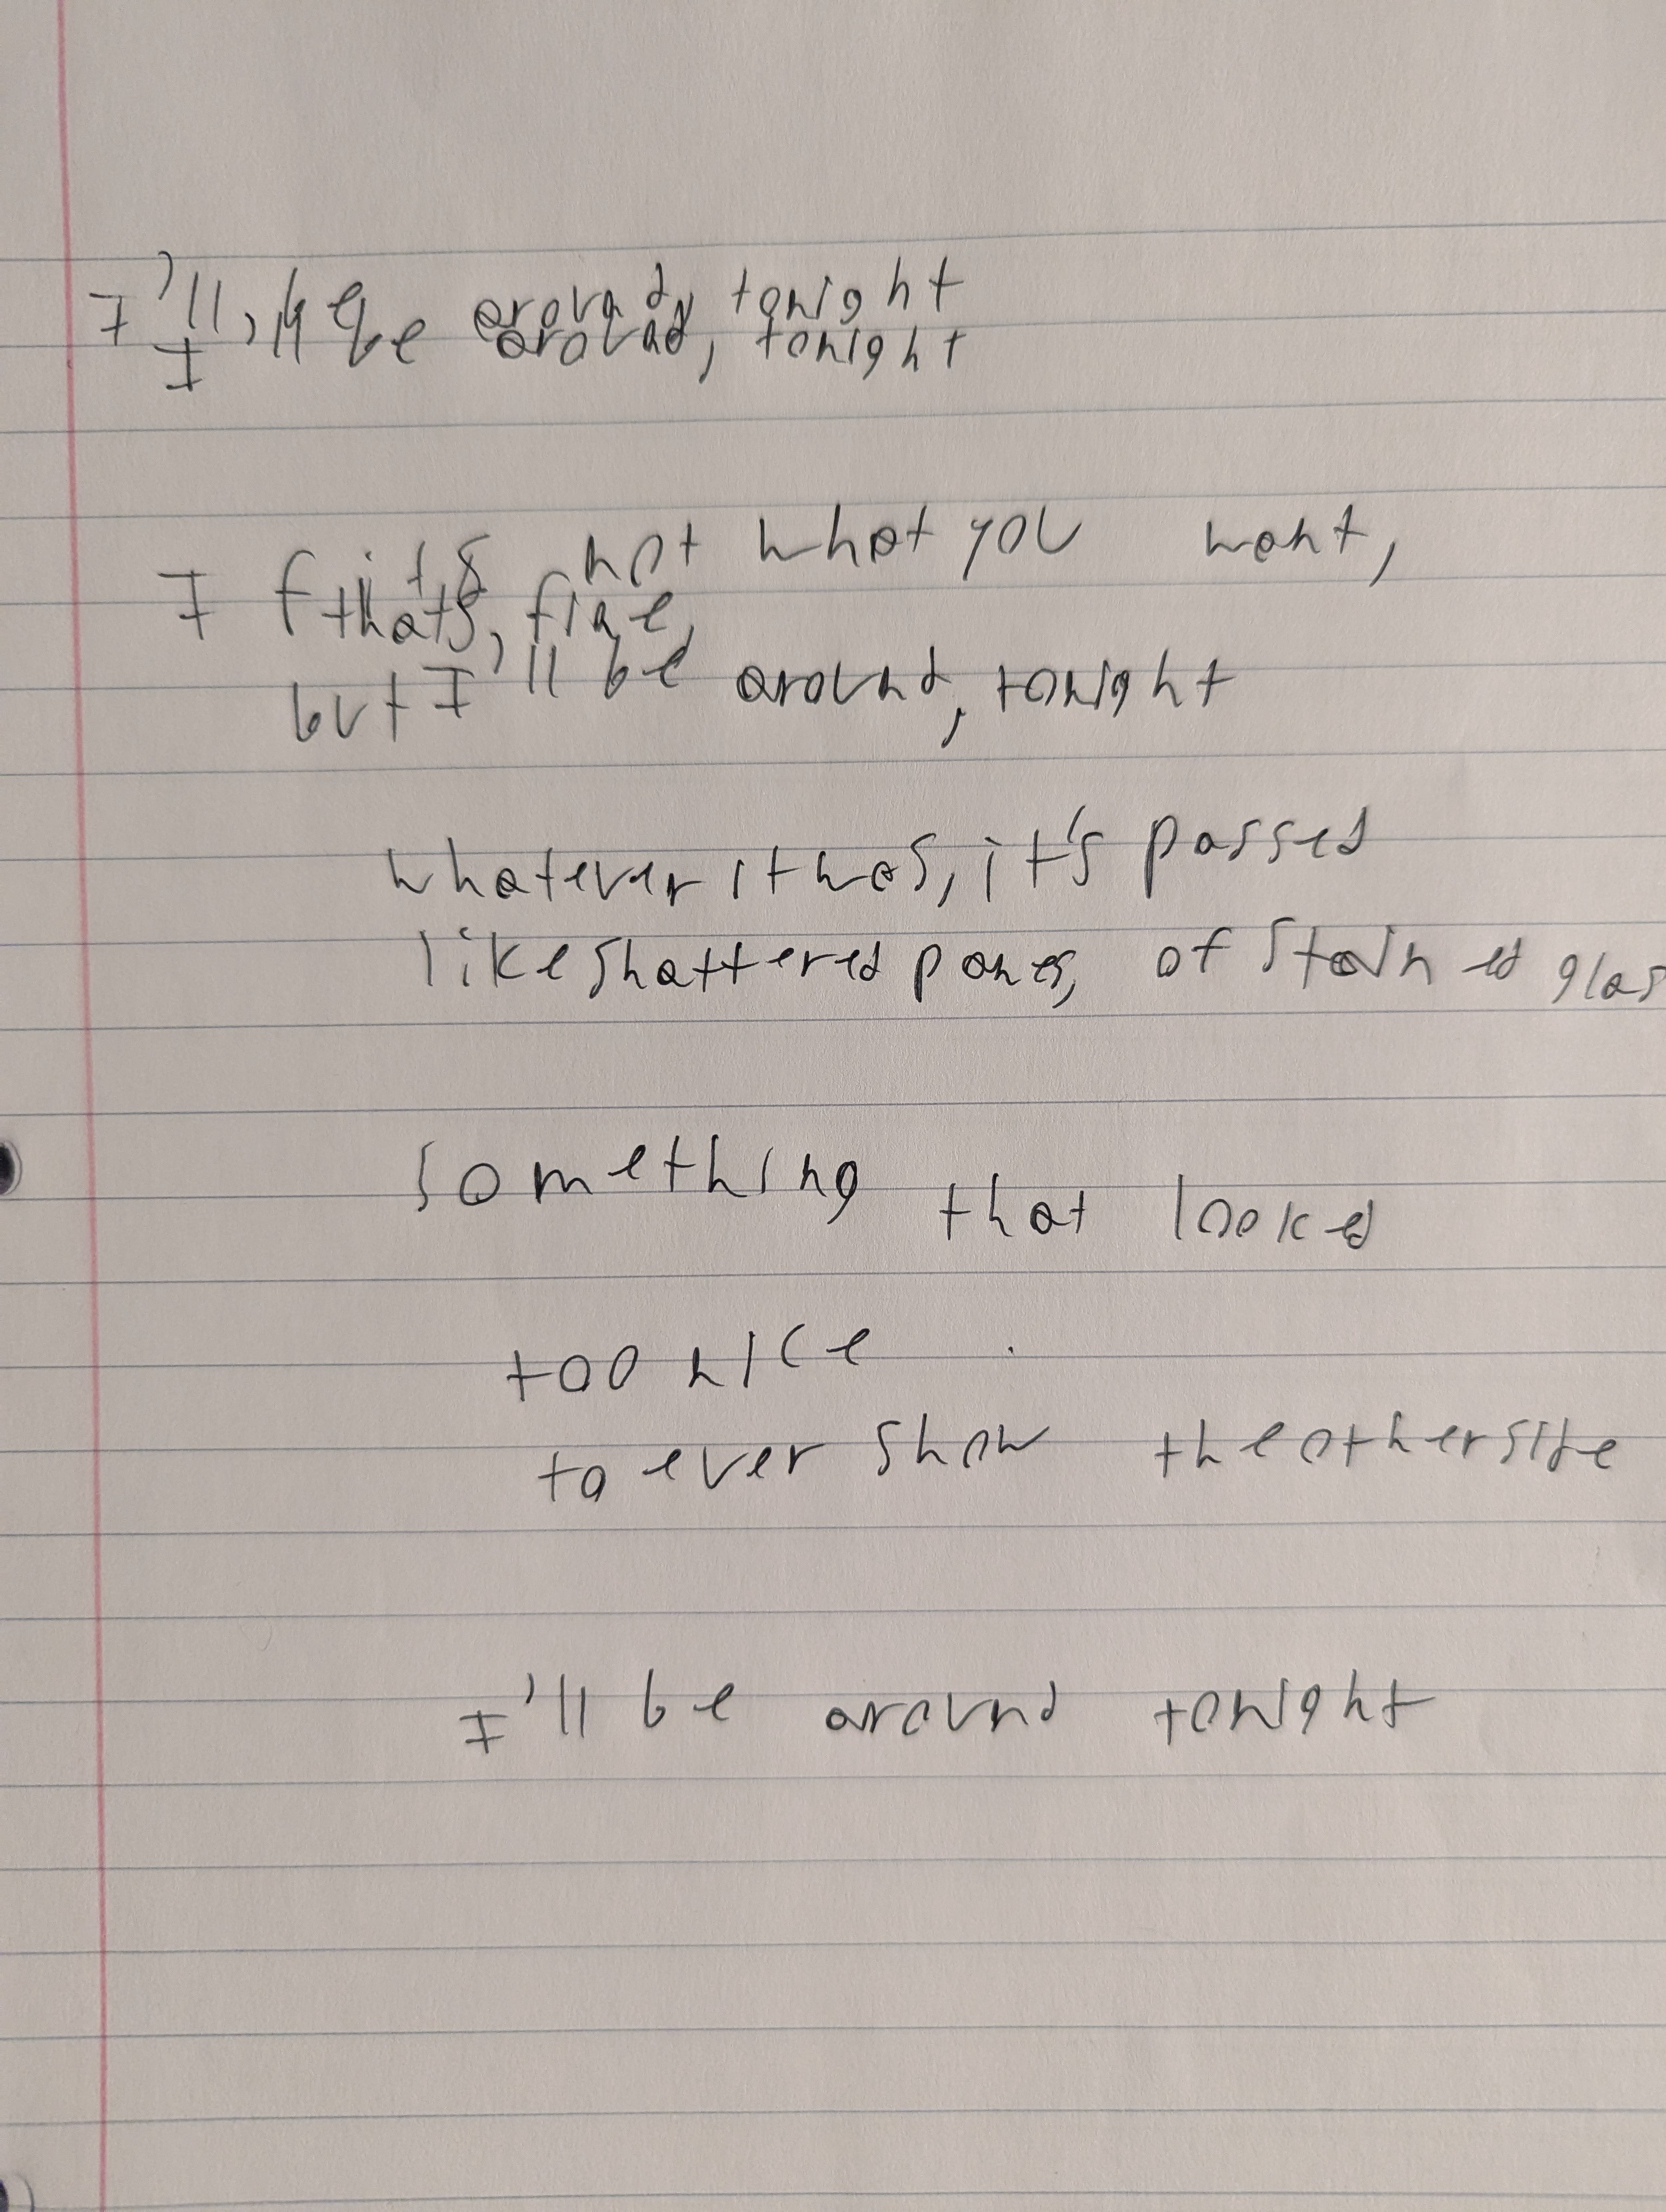 I'll be around, tonight
I'll be around, tonight
If it's not what you want,
thats, fine,
but I'll be around, tonight
whatever it was, it's passed
like shattered panes, of stained glas
something that looked
too nice
to ever show the other side
I'll be around tonight